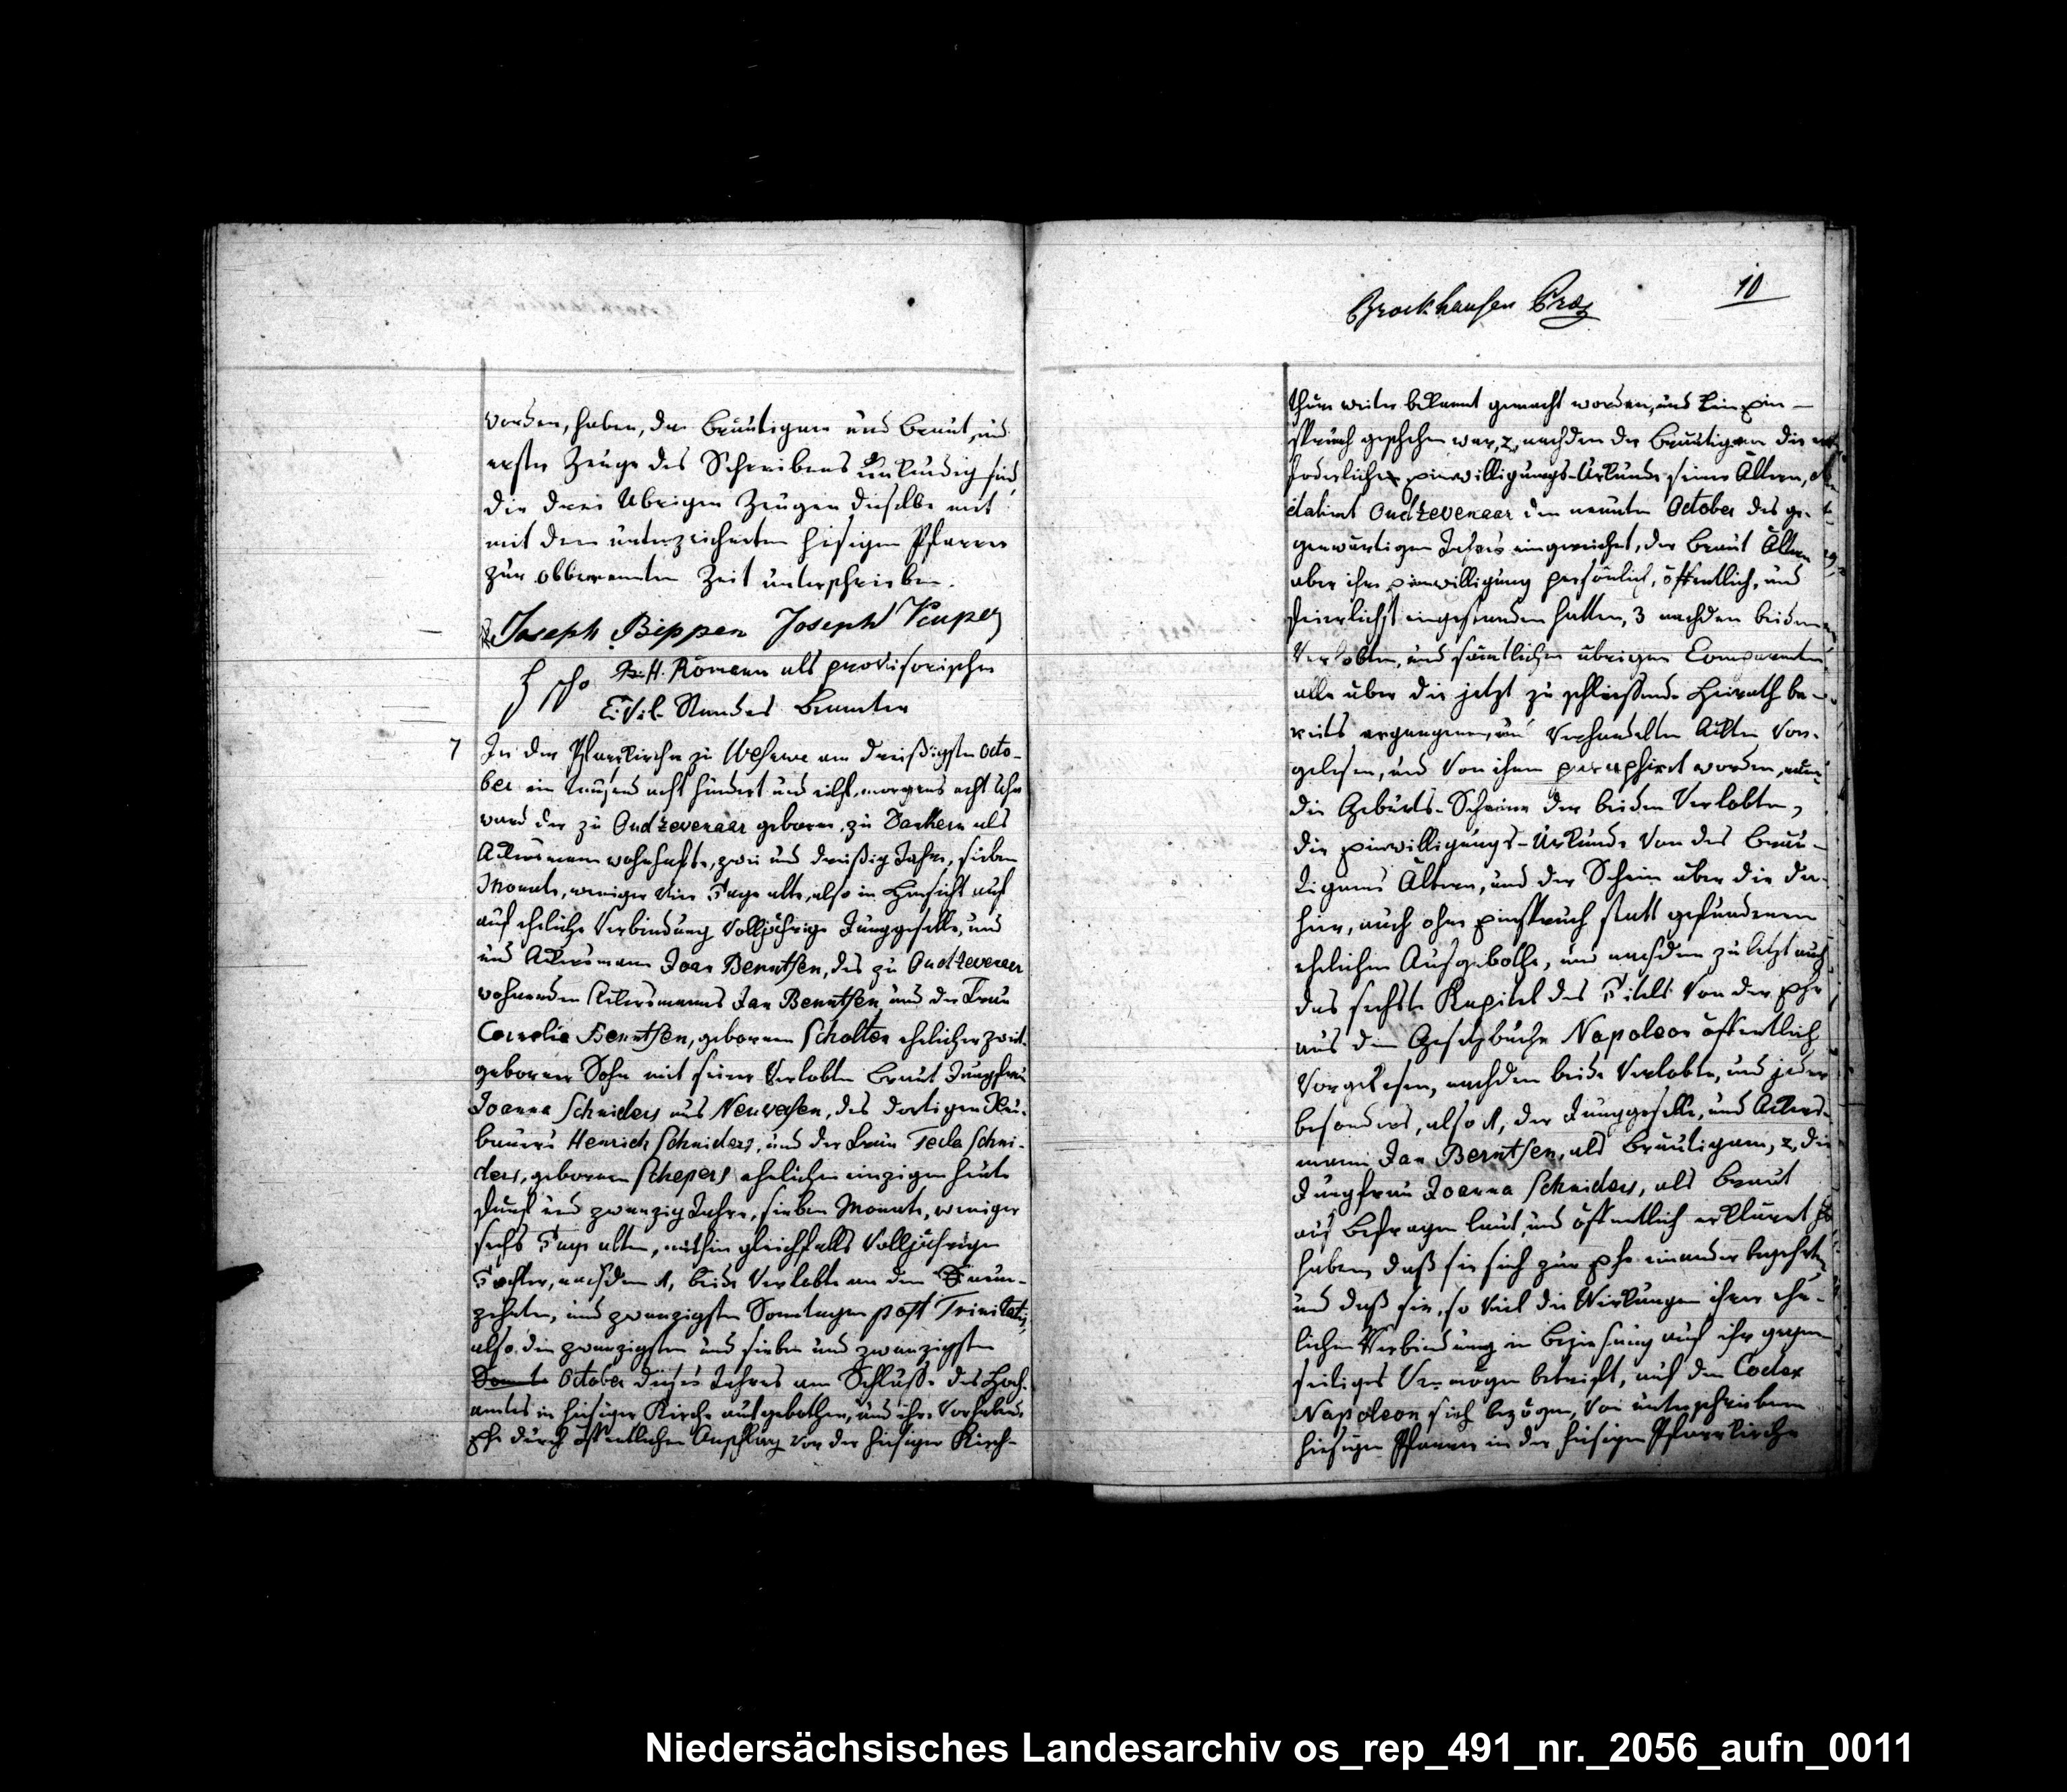 worden, haben, da Bräutigam und Braut, und
erster Zeuge des Schreibens unkundig sind
die drei übrigen Zeugen dieselbe mit
mit dem unterzeichneten hisigen Pfarrer
zur obbenannten Zeit unterschrieben.
Joseph Bippen Joseph
H. Römann als provisorischer
Civil-Standes Beamter
7 In der Pfarrkirche zu Wesuwe am dreißigsten Octo-
ber ein tausend acht hundert und eilf, morgens acht Uhr
ward der zu Oudzevenaar geborne, zu als
Ackersmann wohnhafte, zwei und dreißig Jahre, sieben
Monate, weniger vier Tage alte, also in Hinsicht auf
auf eheliche Verbindung volljährige Junggeselle, und
und Ackersmann Joan Berntsen, des zu Oudzevenaar
wohnenden Ackersmanns Jan Berntsen, und der Frau
Cornelia Berntsen, gebornen Scholten ehelicher zweit-
geborner Sohn mit seiner Verlobten Braut Jungfrau
Joanna Schniders aus Neuversen, des dortigen Neu-
bauers Henrich Schniders, und der Frau Tecla Schni-
ders, gebornen Schepers ehelichen einzigen heute
fünf und zwanzig Jahre, sieben Monate, weniger
sechs Tage alten, mithin gleichfalls volljährigen
Tochter, nachdem 1, beide Verlobte an dem neun-
zehnten, und zwanzigsten Sonntagen post Trinitatis,
also den zwanzigsten und sieben und zwanzigsten
October dieses Jahres am Schlusse des Hoch-
amtes in hiesiger Kirche ausgebothen, und ihre vorhabende
Ehe durch öffentlichen Anschlag vor der hiesigen Kirch-
Brockhausen
10
thüre weiter bekannt gemacht worden, und kein Ein-
spruch geschehen war, 2, nachdem der Bräutigam die
foderliche Einwilligungs-Urkunde seiner Ältern,
datirt Oudzevenaar den neunten October des ge-
genwärtigen Jahres eingereichet, der Braut Ältern
aber ihre Einwilligung persönlich, öffentlich, und
feierlichst eingestanden hatten, 3 nachdem beiden
Verlobten, und sämtlichen übrigen Comparenten
alle über die jetzt zu schliessende Heirath be-
reits ergangenen, und verhandelten Akten vor-
gelesen, und von ihnen paraphirt worden,
die Geburts-Scheine der beiden Verlobten,
die Einwilligungs-Urkunde von des Bräu-
tigams Ältern, und der Schein über die da-
hier, auch ohne Einspruch statt gefundenen
ehelichen Aufgebothe, und nachdem zuletzt auch
das sechste Kapitel des Titels von der Ehe
aus dem Gesetzbuche Napoleon öffentlich
vorgelesen, nachdem beide Verlobte, und jeder
besonders, also 1, der Junggeselle, und Ackers-
mann Jan Berntsen, als Bräutigam, 2, die
Jungfrau Joanna Schniders, als Braut
auf Befragen laut, und öffentlich erkläret
haben, daß sie sich zur Ehe einander begehrten
und daß sie, so viel die Wirkungen ihrer ehe-
lichen Verbindung in Beziehung auf ihr gegen-
seitiges Vermögen betrifft, auf den Codex
Napoleon sich bezögen, von unterschriebenem
hiesigen Pfarrer in der hiesigen Pfarrkirche
Niedersächsisches Landesarchiv os_rep_491_nr._2056_aufn_0011